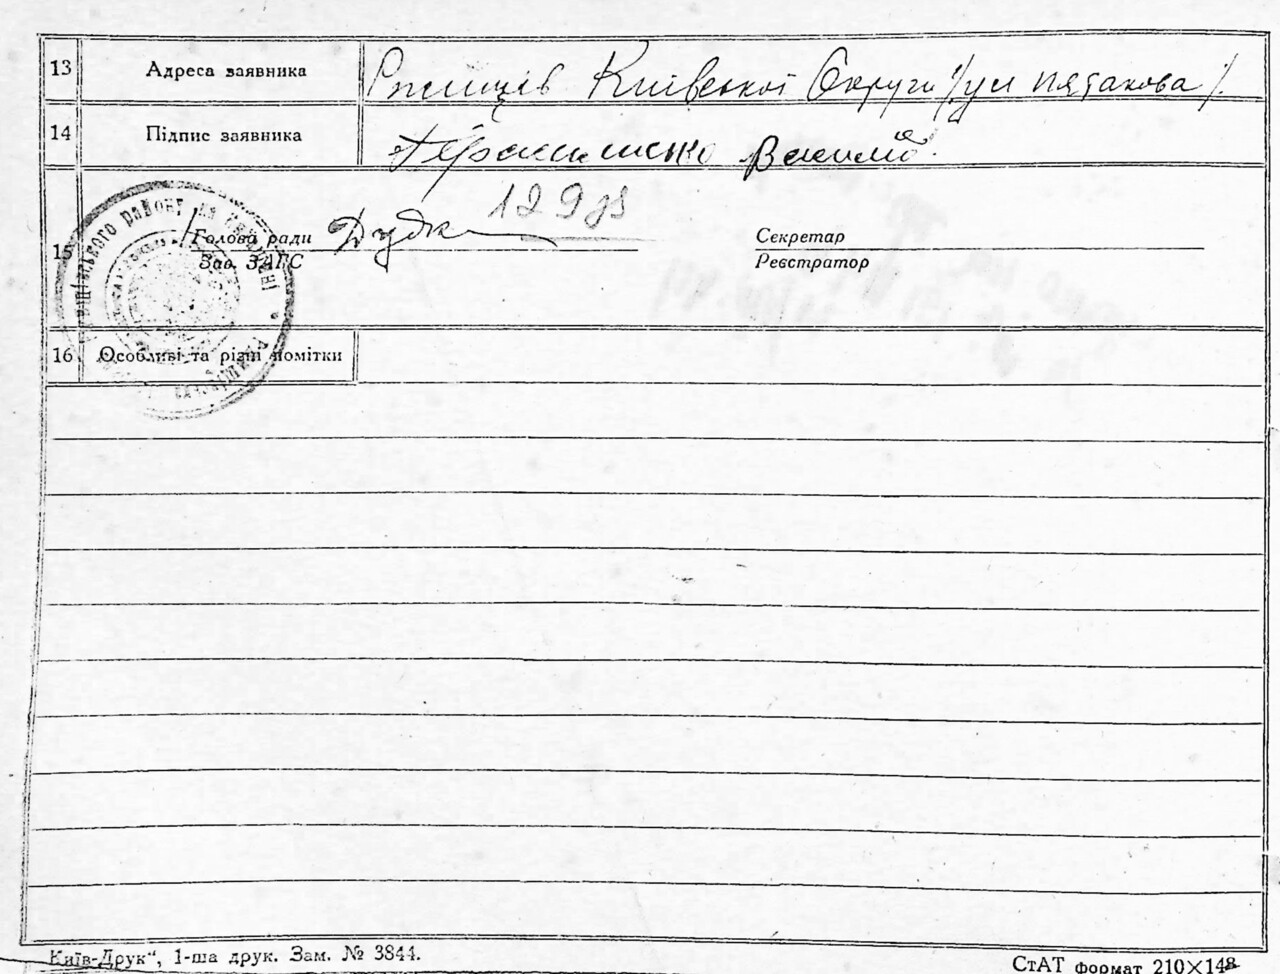 13 Адреса заявника Ржищів Київської Округи /ул Пятакова/.
14 Підпис заявника Герасименко
129
15 Голова ради Дудка Секретар
Зав. ЗАГС Реєстратор
16 Особливі та різні помітки
Київ-Друк“, 1-ша друк. Зам. № 3844.
СтАТ формат 210×148